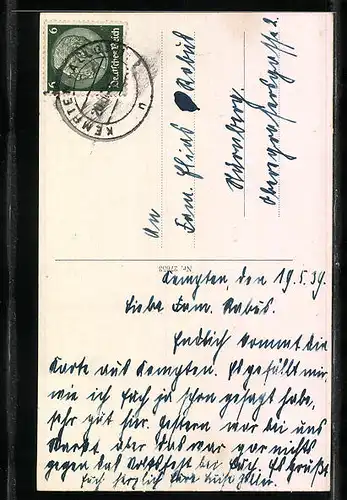 6 6
Deutsches Reich
KEMPTEN
An
Fam. Elias Rabus
Nürnberg.
Obere
Nr. 27653
Kempten, den 19.5.39.
Liebe Fam. Rabus.
Endlich kommt die
Karte aus Kempten. Es gefällt mir,
wie ich Euch ja schon gesagt habe,
sehr gut hier. Gestern war bei uns
Markt aber das war gar nichts
gegen das Volksfest bei Euch. Es grüßt
Euch herzlich Eure